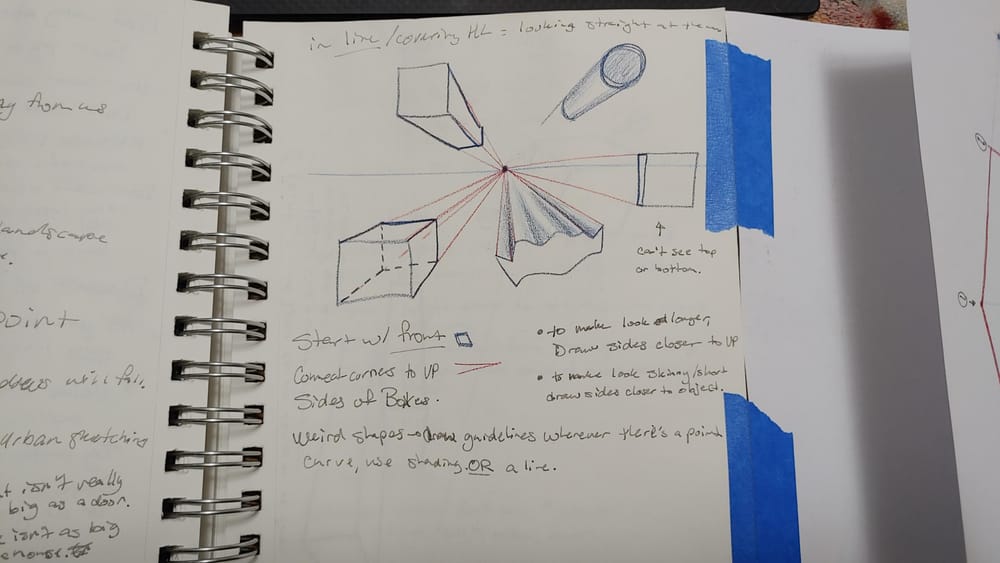 in line/covering HL = looking straight at them
can't see top
or bottom.
Start w/ front
Connect corners to VP
Sides of Boxes.
• to make look longer,
Draw sides closer to VP
• to make look skinny/short
draw sides closer to object.
Weird shapes → draw guidelines wherever there's a point
curve, use shading. OR a line.
from us
landscape
point
will fall.
Urban sketching
isn't really
big as a door.
isn't as big